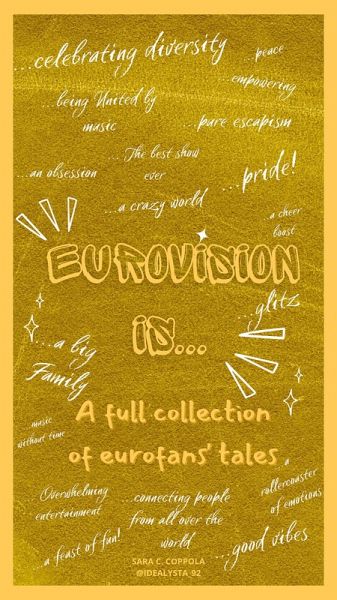 ...celebrating diversity
...peace
...empowering
...being United by
music
...pure escapism
...The best show
ever
...an obsession
...pride!
...a crazy world
a cheer
boost
EUROVISION
IS...
...glitz
...a big
Family
music
without time
A full collection
of eurofans' tales
a
rollercoaster
of emotions
Overwhelming
entertainment
...connecting people
from all over the
world
...a feast of fun!
...good vibes
SARA C. COPPOLA
@IDEALYSTA_92